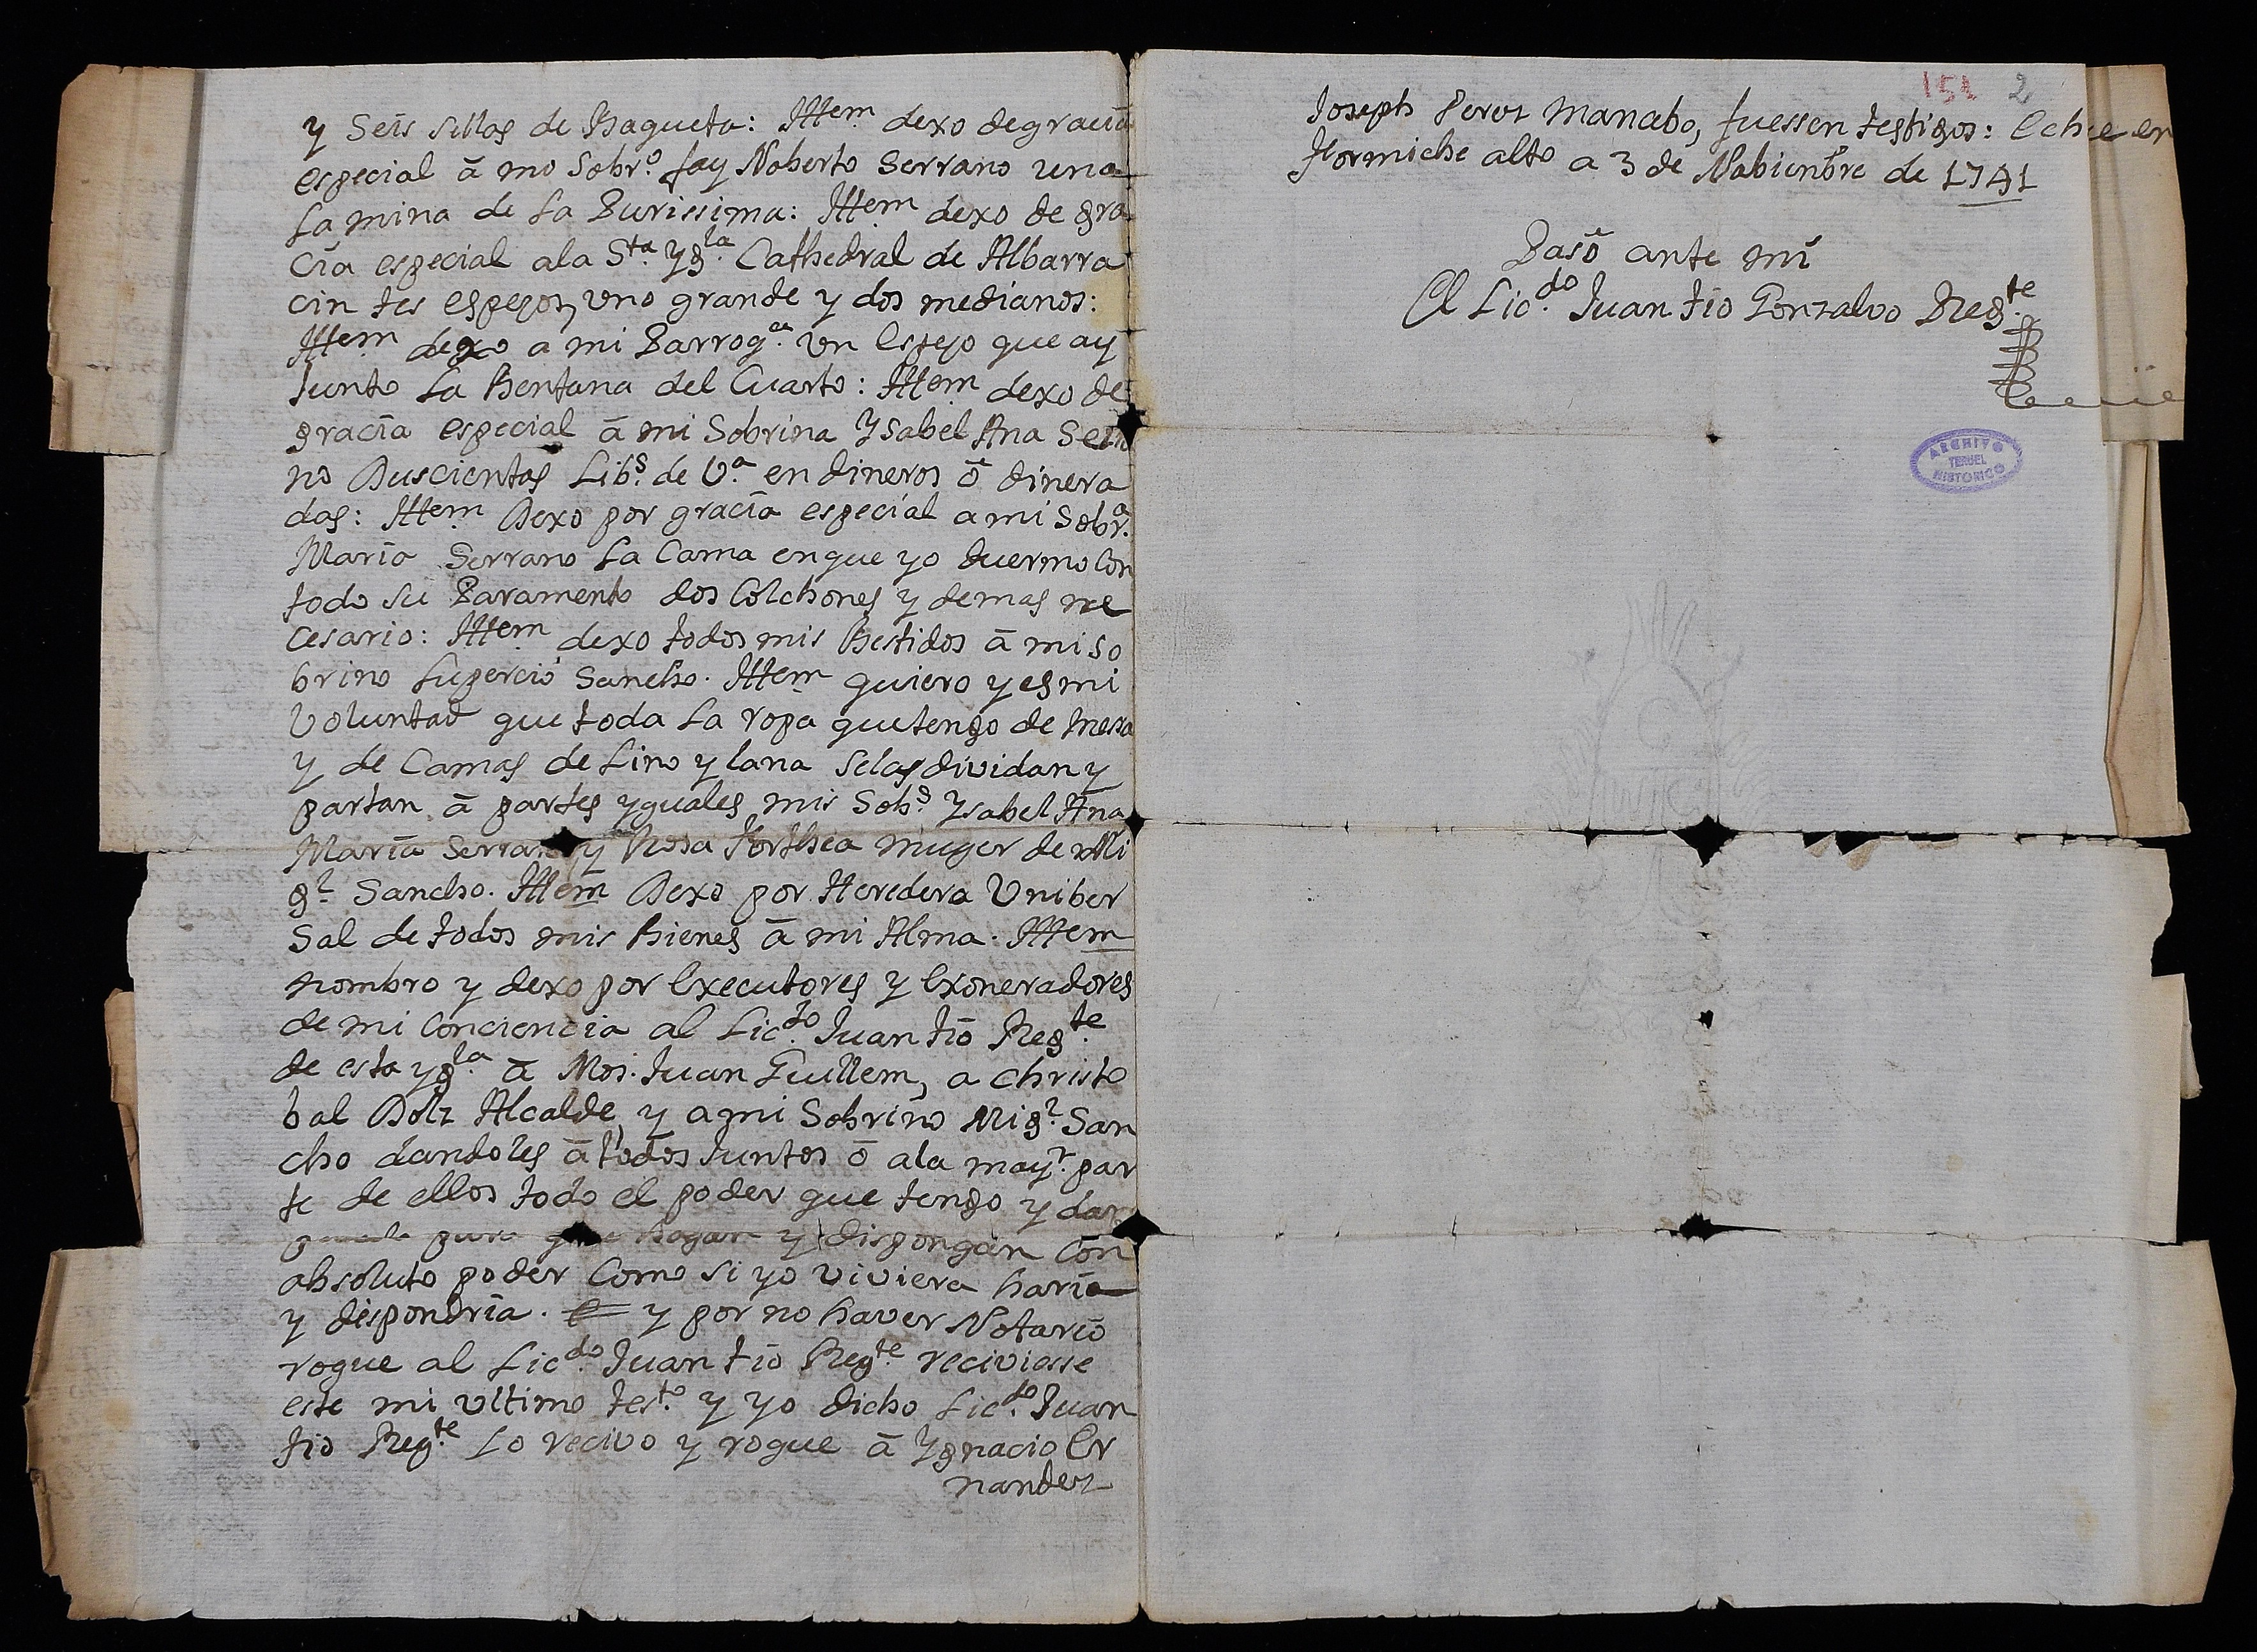 y Seis sillas de Baqueta: Ittem dexo de gracia
especial â mo Sobr.º fay Noberto Serrano una
Lamina de la Purissima: Ittem dexo de gra
cia especial ala S.ta Ygl.a Cathedral de Albarra
cin tes espejos, uno grande y dos medianos:
Ittem dexo a mi Parroq.a un Espejo que ay
Junto la Bentana del Cuarto: Ittem dexo de
gracia especial â mi Sobrina Ysabel Ana Serra
no Duscientas Lib.s de V.a en dineros ô dinera
das: Ittem Dexo por gracia especial a mi Sobr.a
Maria Serrano la Cama en que yo duermo Con
todo su Paramento dos Colchones y demas ne
cesario: Ittem dexo todos mis Bestidos â mi so
brino Lupercio Sancho. Ittem quiero y es mi
Voluntad que toda la ropa que tengo de mesa
y de Camas de Lino y lana se las dividan y
partan â partes yguales mis Sob.s Ysabel Ana
Maria Serrano y Rosa Forthea muger de Mi
g.l Sancho. Ittem Dexo por Heredera Uniber
sal de todos mis Bienes â mi Alma. Ittem
nombro y dexo por Executores y Exoneradores
de mi Conciencia al Lic.do Juan Fio Reg.te
de esta ygl.a â Mos. Juan Guillem, a Christo
bal Dolz Alcalde, y a mi Sobrino Mig.l San
cho dandoles â todos Juntos ô ala may.r par
te de ellos todo el poder que tengo y dar
puedo para que hagan y dispongan Con
absoluto poder Como si yo viviera haria
y dispondria. y por no haver Notario
rogue al Lic.do Juan Fio Reg.te reciviesse
este mi ultimo test.to y yo dicho Lic.do Juan
Fio Reg.te lo recivo y rogue â Ygnacio Er
nandez
151 2
Joseph Perez Mancebo, fuessen testigos: Echo en
Formiche alto a 3 de Nobienbre de 1741
Pasô ante mi
El Lic.do Juan Fio Gonzalvo Reg.te
ARCHIVO
TERUEL
HISTORICO